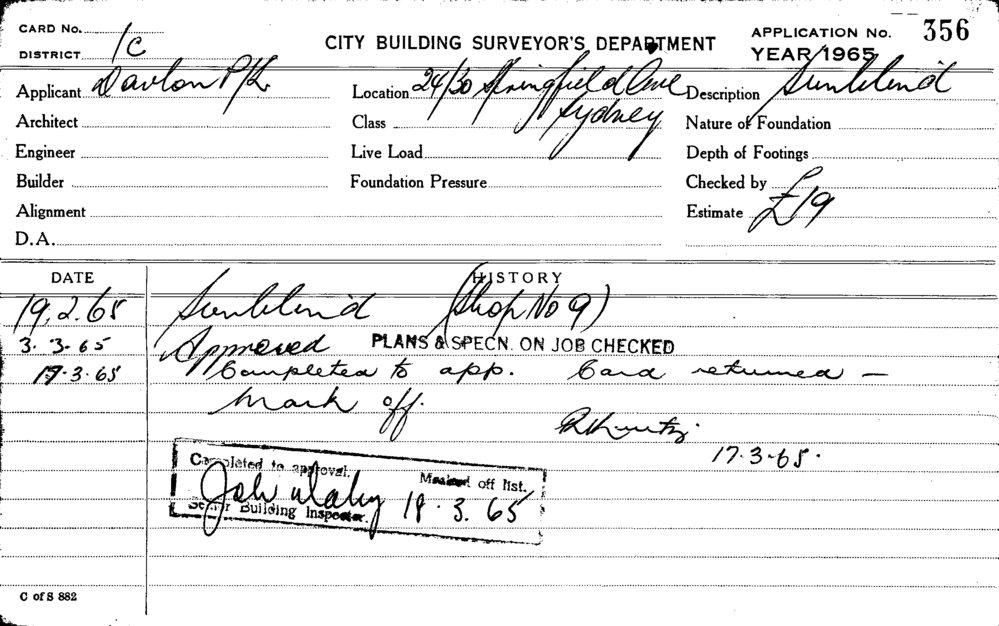 CARD No.
DISTRICT 1C
CITY BUILDING SURVEYOR'S DEPARTMENT
APPLICATION No. 356
YEAR 1965
Applicant Davlon P/L Location 24/30 Springfield Ave Description Sunblind
Architect Class Sydney Nature of Foundation
Engineer Live Load Depth of Footings
Builder Foundation Pressure Checked by
Alignment Estimate £19
D.A.
DATE HISTORY
19.2.65 Sunblind (Shop No 9)
3.3.65 Approved PLANS & SPECN. ON JOB CHECKED
17.3.65 Completed to app. Card returned —
Mark off.
17.3.65.
Completed to approval. Marked off list.
18.3.65
Senior Building Inspector.
C of S 882